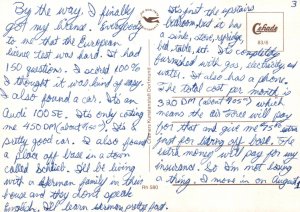 By the way, I finally
got my license. Everybody
told me that the European
license test was hard. It had
150 questions. I scored 100%
I thought it was kind of easy.
I also found a car. It's an
Audi 100SE. It's only costing
me 450 DM (about $150). It's a
pretty good car. I also found
a place off base in a town
called. I'll be living
with a German family in their
house and they don't speak
English. I'll learn German pretty fast.
3
It's just the upstairs
bedroom but it has a
sink, stove, refrige,
bed, table, etc. It's completely
furnished with gas, electricity, and
water. It also has a phone.
The total cost per month is
320 DM (about) which
means the Air Force will pay
for that and give me
just for living off base. The
extra money will pay for my
insurance. So I'm not losing
a thing. I move in on August
RH 580